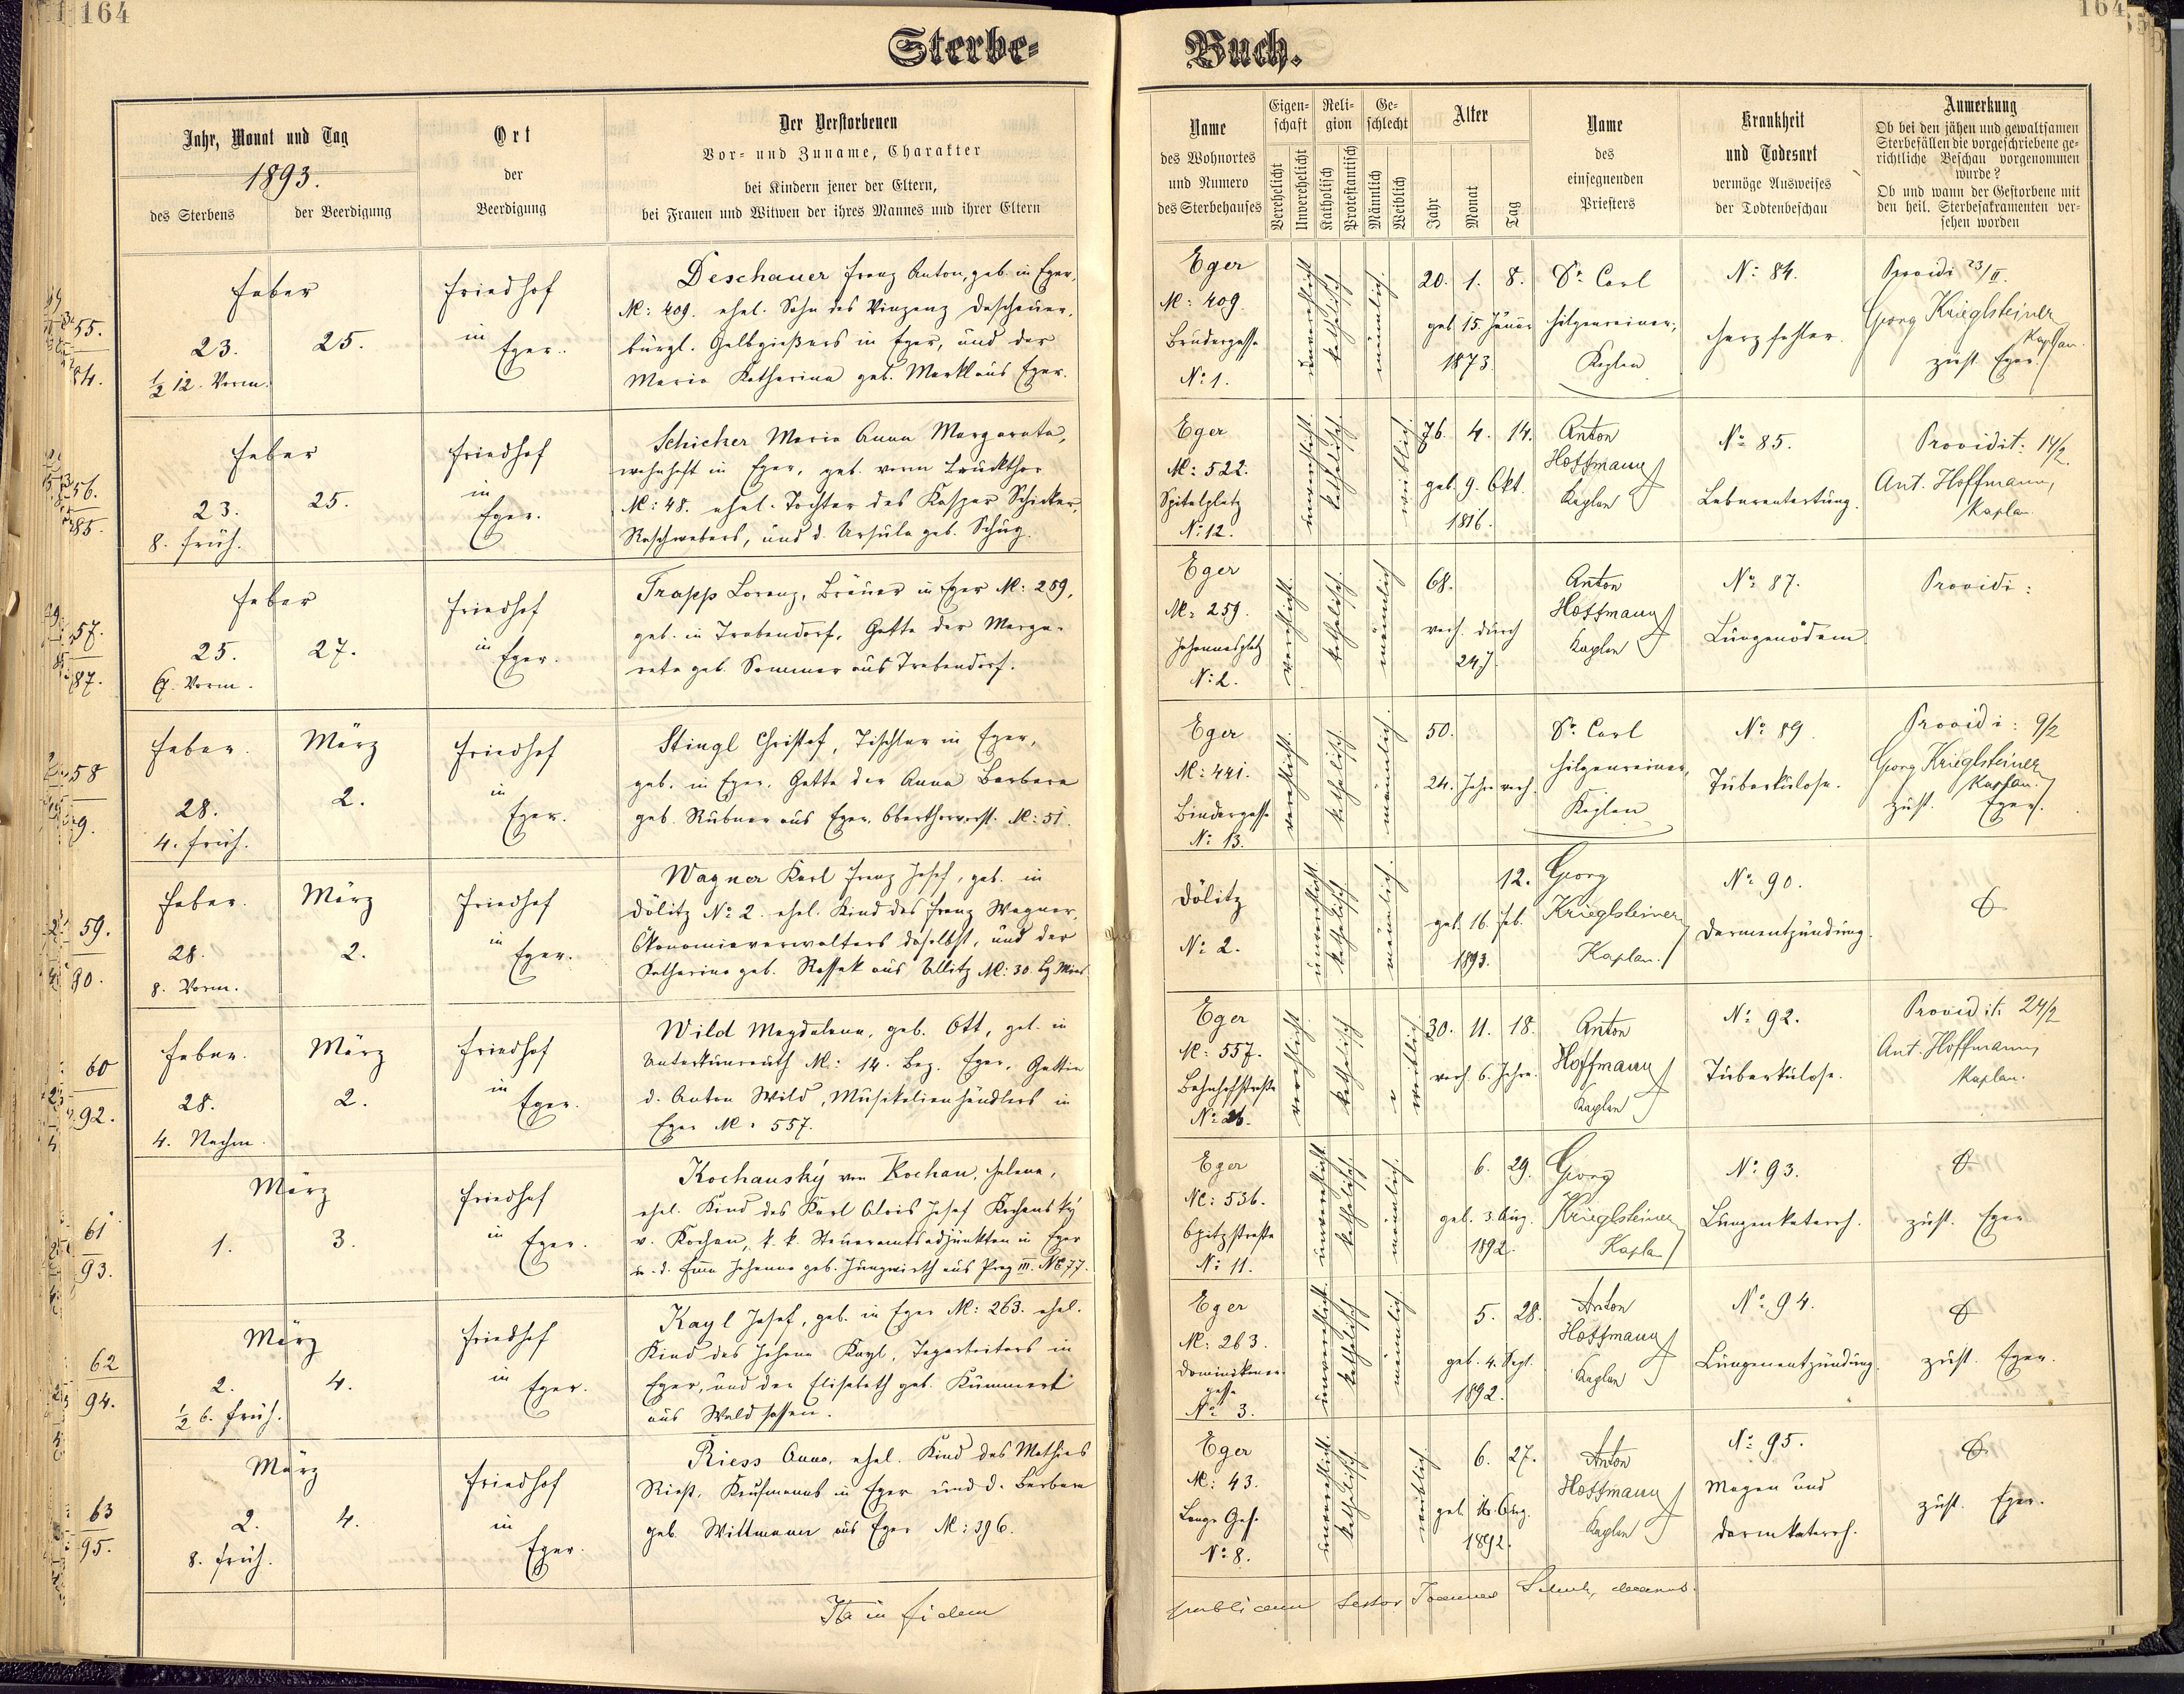 164
164
Sterbe-
Buch.
Jahr, Monat und Tag
1893.
des Sterbens
der Beerdigung
Ort
der
Beerdigung
Der Verstorbenen
Vor- und Zuname, Charakter
bei Kindern jener der Eltern,
bei Frauen und Witwen der ihres Mannes und ihrer Eltern
Name
des Wohnortes
und Numero
des Sterbehauses
Eigen-
schaft
Verehelicht
Unverehelicht
Reli-
gion
Katholisch
Protestantisch
Ge-
schlecht
Männlich
Weiblich
Alter
Jahr
Monat
Tag
Name
des
einsegnenden
Priesters
Krankheit
und Todesart
vermöge Ausweises
der Todtenbeschau
Anmerkung
Ob bei den jähen und gewaltsamen
Sterbefällen die vorgeschriebene ge-
richtliche Beschau vorgenommen
wurde?
Ob und wann der Gestorbene mit
den heil. Sterbesakramenten ver-
sehen worden
55.
84.
Feber
23.
25.
½ 12. Vorm.
Friedhof
in
Eger.
Deschauer Franz Anton, geb. in Eger,
Nc: 409. ehel. Sohn des Vinzenz Deschauer,
bürgl. Gelbgießers in Eger, und der
Maria Katharina geb. Markl aus Eger.
Eger
Nc: 409.
Brudergasse
No 1.
unverehelicht
katholisch
männlich.
20. 1. 8.
geb. 15. Jänner
1873
Dr. Carl
Hilgenreiner,
Kaplan
No: 84.
Herzfehler.
Providi 23/II.
Georg Krieglsteiner
Kaplan.
zust. Eger.
56.
85.
Feber
23.
25.
8. früh.
Friedhof
in
Eger.
Schicker Maria Anna Margareta,
wohnhaft in Eger, geb. vorm Bruckthor
Nc: 48. ehel. Tochter des Kaspar Schicker,
Raschwebers, und d. Ursula geb. Schug.
Eger
Nc: 522.
Spitalplatz
No: 12.
unverehelicht
katholisch
weiblich
76. 4. 14.
geb. 9. Okt.
1816.
Anton
Hoffmann
Kaplan
No 85.
Leberentartung.
Providit: 14/2.
Ant. Hoffmann,
Kaplan.
57.
87.
Feber
25.
27.
Vorm.
Friedhof
in Eger.
Trapp Lorenz, Bräuer in Eger Nc: 259,
geb. in Trebendorf, Gatte der Marga-
reta geb. Sommer aus Trebendorf.
Eger
Nc: 259.
Johannesplatz
No: 2.
verehelicht.
katholisch.
männlich
68.
verh. durch
24 J.
Anton
Hoffmann
Kaplan
No: 87.
Lungenödem.
Providi:
58
Feber.
März
28.
2.
4. früh.
Friedhof
in
Eger.
Stingl Christof, Tischler in Eger,
geb. in Eger, Gatte der Anna Barbara
geb. Rubner aus Eger, Oberthorvorst. Nc: 51.
Eger
Nc: 441.
Bindergasse
No: 13.
verehelicht.
katholisch
männlich.
50.
24. Jahre verh.
Dr. Carl
Hilgenreiner,
Kaplan
No 89.
Tuberkulose.
Providi: 9/2
Georg Krieglsteiner
Kaplan.
zust. Eger.
59.
90.
Feber.
März
28.
2.
8. Vorm.
Friedhof
in
Eger.
Wagner Karl Franz Josef, geb. in
Dölitz No 2. ehel. Kind des Franz Wagner,
Ökonomieverwalters daselbst, und der
Katharina geb. Rassek aus Ullitz Nc: 30. Bz Mies
Dölitz
No: 2.
unverehelicht.
katholisch
männlich.
12.
geb. 16. Feb.
1893.
Georg
Krieglsteiner,
Kaplan.
No 90.
Darmentzündung.
60
92.
Feber.
März
28.
2.
4. Nachm.
Friedhof
in
Eger.
Wild Magdalena, geb. Ott, geb. in
Unterkunreuth Nc: 14. Bez. Eger, Gattin
d. Anton Wild, Musikalienhändlers in
Eger Nc: 557.
Eger
Nc: 557.
Bahnhofstraße
No: 26.
verehelicht.
katholisch
weiblich.
30. 11. 18.
verh. 6. Jahre.
Anton
Hoffmann
Kaplan
No: 92.
Tuberkulose.
Providit: 24/2
Ant. Hoffmann,
Kaplan.
61
93.
März
1.
3.
Friedhof
in
Eger.
Kochanský von Kochan, Helene,
ehel. Kind des Karl Alois Josef Kochanský
v. Kochan, k. k. Steueramtsadjunkten in Eger
u. d. Emma Johanna geb. Jungwirth aus Prag III. Nc 77.
Eger
Nc: 536.
Opitzstraße
No: 11.
unverehelicht.
katholisch.
männlich.
6. 29.
geb. 3. Aug.
1892.
Georg
Krieglsteiner
Kaplan
No: 93.
Lungenkatarrh.
zust. Eger
62
94.
März
2.
4.
½ 6. früh.
Friedhof
in
Eger.
Kayl Josef, geb. in Eger Nc: 263. ehel.
Kind des Johann Kayl, in
Eger, und der Elisabeth geb. Kummert
aus Waldsassen.
Eger
Nc: 263.
Dominikaner-
gasse
No 3.
unverehelicht.
katholisch
männlich
5. 28.
geb. 4. Sept.
1892.
Anton
Hoffmann
Kaplan
No 94.
Lungenentzündung.
zust. Eger.
63
95.
März
2.
4.
8. früh.
Friedhof
in
Eger.
Riess Anna, ehel. Kind des Mathias
Riess, Kaufmanns in Eger und d. Barbara
geb. Wittmann aus Eger Nc: 396.
Eger
Nc: 43.
Lange Gas.
No: 8.
unverehelicht.
katholisch
weiblich
6. 27.
geb. Aug.
1892.
Anton
Hoffmann
Kaplan
No: 95.
Magen und
Darmkatarrh.
zust. Eger.
Ita in fidem
publicam testor Joannes